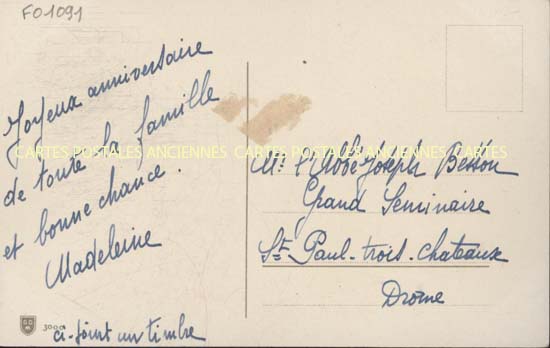 FO1091
Joyeux anniversaire
de toute la famille
et bonne chance.
Madeleine
ci-joint un timbre
3000
CARTES POSTALES ANCIENNES CARTES POSTALES ANCIENNES
Mr l'Abbé Joseph Besson
Grand Seminaire
St Paul-trois-chateaux
Drome